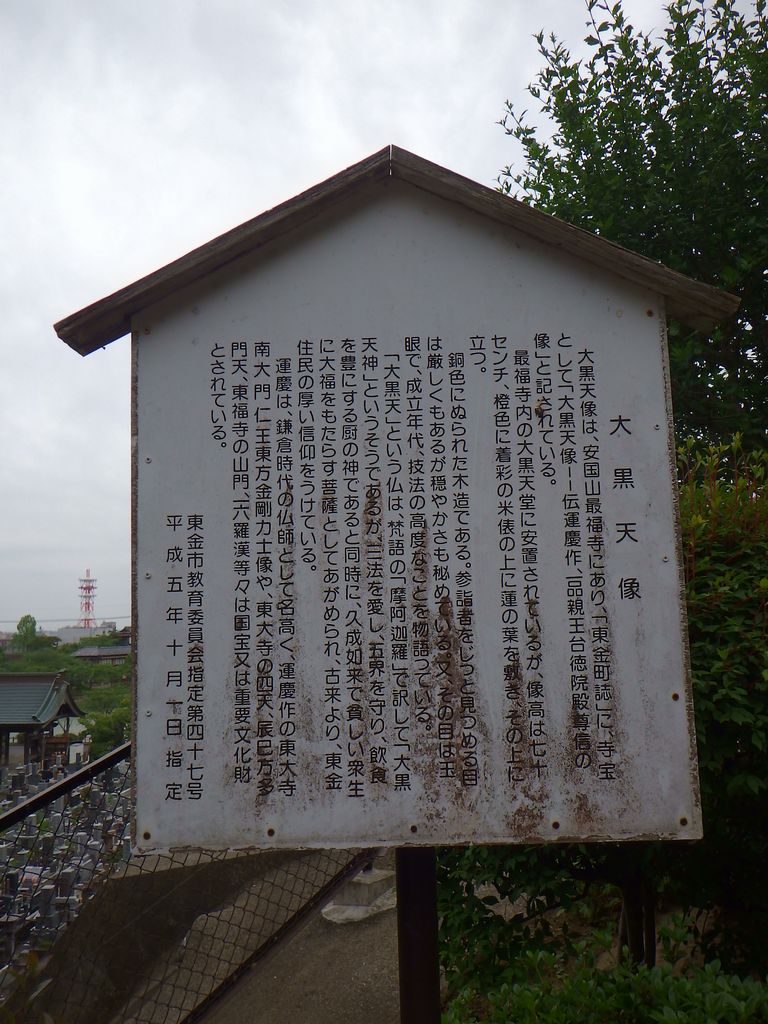 大黒天像
大黒天像は、安国山最福寺にあり、「東金町誌」に、寺宝
として「大黒天像ー伝運慶作、一品親王台徳院殿尊信の
像」と記されている。
最福寺内の大黒天堂に安置されているが、像高は七十
センチ、橙色に着彩の米俵の上に蓮の葉を敷き、その上に
立つ。
銅色にぬられた木造である。参詣者をじっと見つめる目
は厳しくもあるが穏やかさも秘めている。又、その目は玉
眼で、成立年代、技法の高度なことを物語っている。
「大黒天」という仏は、梵語の「摩阿迦羅」で訳して「大黒
天神」というそうであるが、三法を愛し、五界を守り、飲食
を豊にする厨の神であると同時に、久成如来で貧しい衆生
に大福をもたらす菩薩としてあがめられ、古来より、東金
住民の厚い信仰をうけている。
運慶は、鎌倉時代の仏師として名高く、運慶作の東大寺
南大門 仁王東方金剛力士像や、東大寺の四天、辰巳方多
門天、東福寺の山門、六羅漢等々は国宝又は重要文化財
とされている。
東金市教育委員会指定第四十七号
平成五年十月 日指定